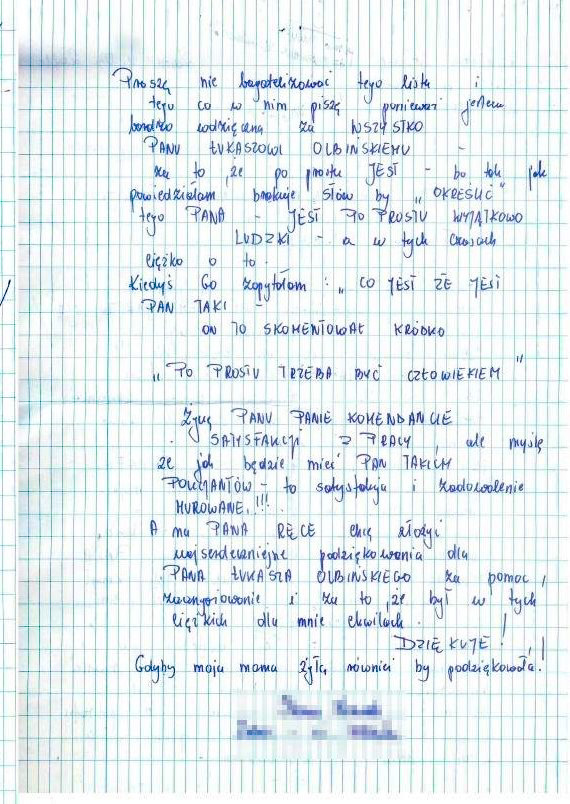 Proszę nie bagatelizować tego listu i
tego co w nim piszę ponieważ jestem
bardzo wdzięczna za WSZYSTKO
PANU ŁUKASZOWI OLBIŃSKIEMU -
za to, że po prostu JEST - bo tak jak
powiedziałam brakuje słów by „OKREŚLIĆ"
tego PANA - JEST PO PROSTU WYJĄTKOWO
LUDZKI - a w tych czasach
ciężko o to.
Kiedyś Go zapytałam: „CO JEST ŻE JEST
PAN TAKI -
ON TO SKOMENTOWAŁ KRÓDKO
„PO PROSTU TRZEBA BYĆ CZŁOWIEKIEM"
Życzę PANU PANIE KOMENDANCIE
SATYSFAKCJI Z PRACY, ale myślę
że jak będzie mieć PAN TAKICH
POLICJANTÓW - to satysfakcja i zadowolenie
MUROWANE!!!
A na PANA RĘCE chcę złożyć
najserdeczniejsze podziękowania dla
PANA ŁUKASZA OLBIŃSKIEGO za pomoc,
zaangażowanie i za to, że był w tych
ciężkich dla mnie chwilach.
DZIĘKUJĘ!!!
Gdyby moja mama żyła również by podziękowała!